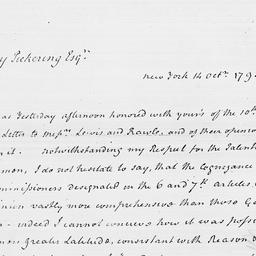 y Pickering Esqr.
New York 14 Octr. 179
as Yesterday afternoon honored with your's of the 10th
Letter to messrs. Lewis and Rawle, and of their openion
it. notwithstanding my Respect for the Talents
men, I do not hesitate to say, that the Cognizance
ommissioners designated in the 6 and 7th articles
inion vastly more comprehensive than those Ge
indeed I cannot conceive how it was possi
more greater Latitude, consistant with Reason